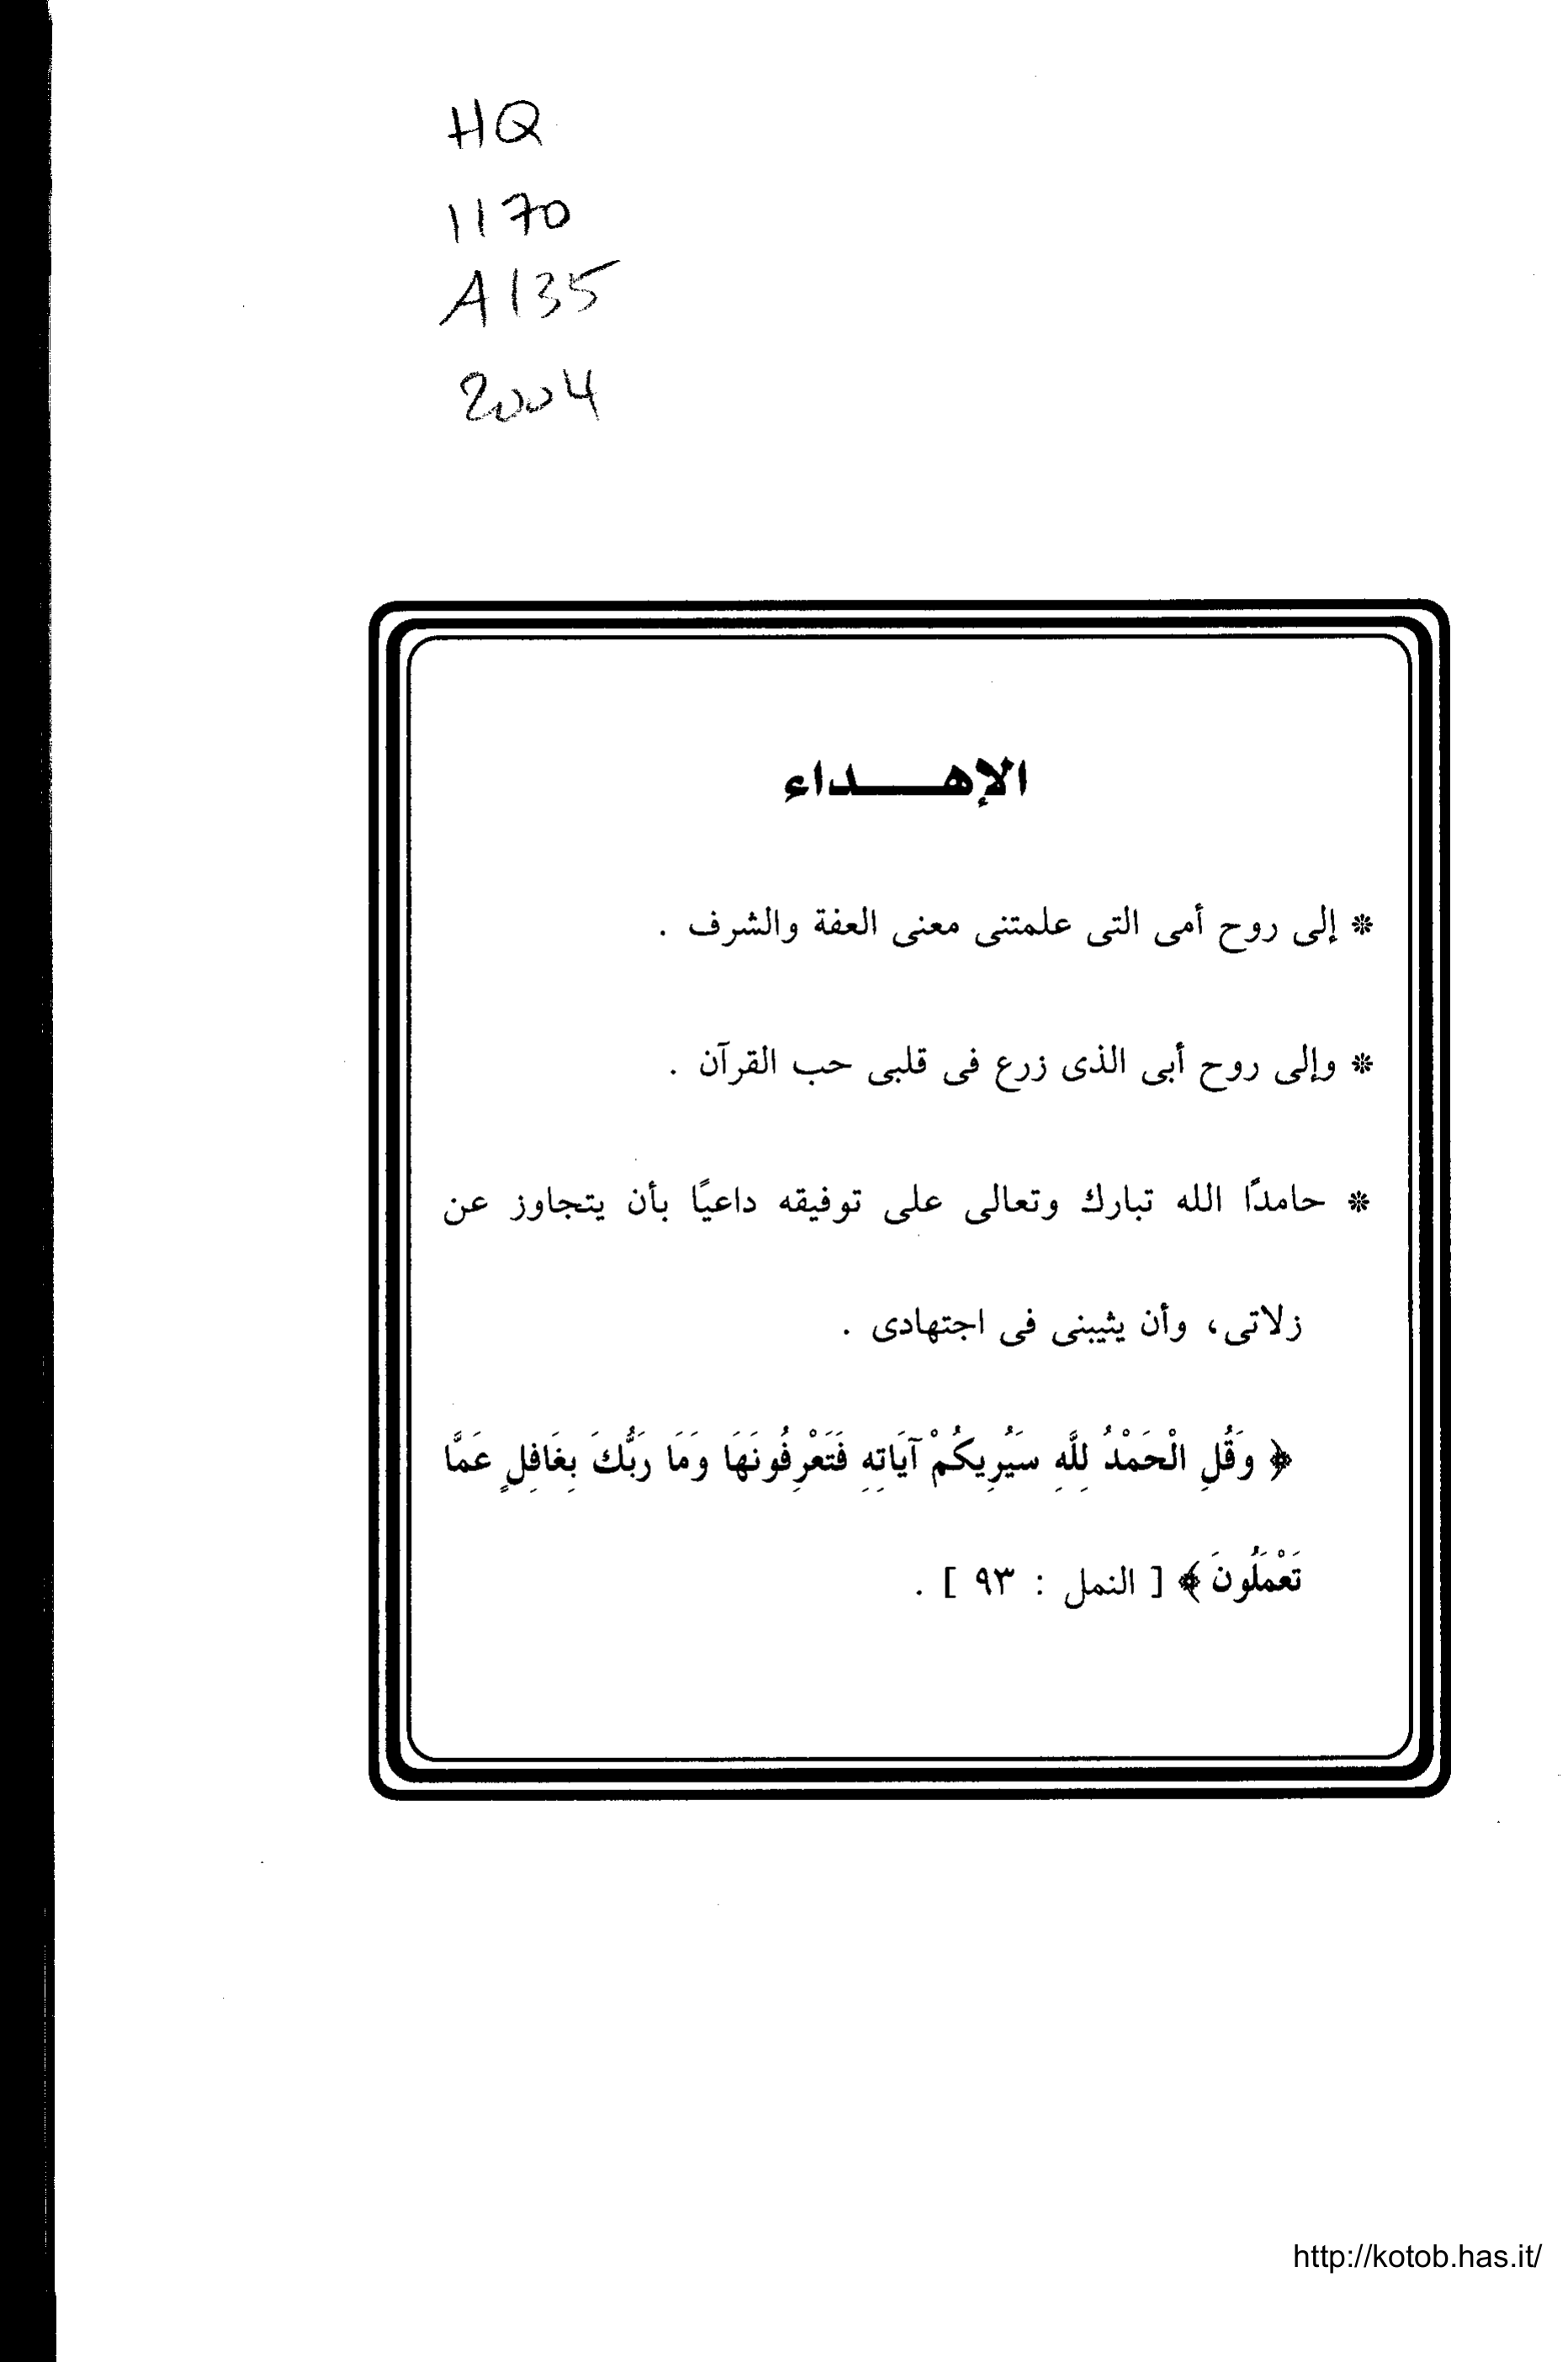 HQ
1170
A135
2004
الإهـــداء
* إلى روح أمى التى علمتنى معنى العفة والشرف .
* وإلى روح أبى الذى زرع فى قلبى حب القرآن .
* حامدًا الله تبارك وتعالى على توفيقه داعيًا بأن يتجاوز عن
زلاتى، وأن يثيبنى فى اجتهادى .
﴿ وَقُلِ الْحَمْدُ لِلَّهِ سَيُرِيكُمْ آيَاتِهِ فَتَعْرِفُونَهَا وَمَا رَبُّكَ بِغَافِلٍ عَمَّا
تَعْمَلُونَ ﴾ [ النمل : ٩٣ ] .
http://kotob.has.it/